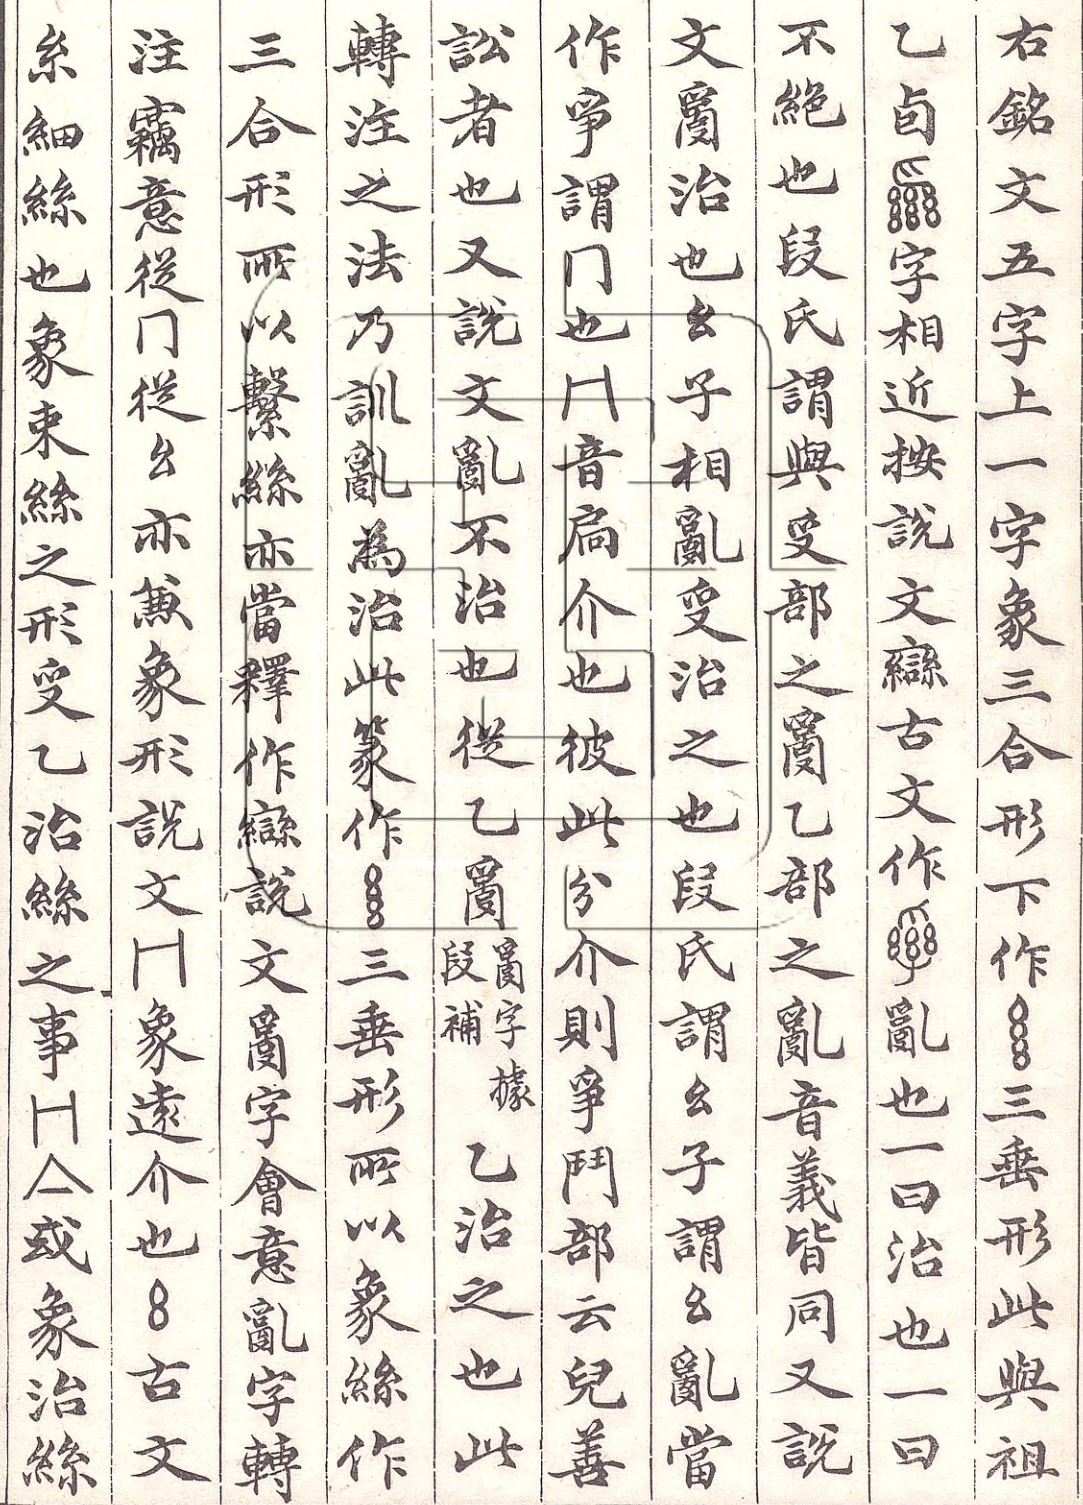 右銘文五字上一字象三合形下作三垂形此與祖
乙卣字相近按說文䜌古文作亂也一曰治也一曰
不絕也段氏謂與𠬪部之𤔔乙部之亂音義皆同又說
文𤔔治也幺子相亂𠬪治之也段氏謂幺子謂幺亂當
作爭謂冂也𠂆音扃介也彼此分介則爭鬥部云兒善
訟者也又說文亂不治也從乙𤔔𤔔字據段補乙治之也此
轉注之法乃訓亂為治此篆作三垂形所以象絲作
三合形所以繫絲亦當釋作䜌說文𤔔字會意亂字轉
注竊意從冂從幺亦兼象形說文冂象遠介也古文
糸細絲也象束絲之形𠬪乙治絲之事亼或象治絲